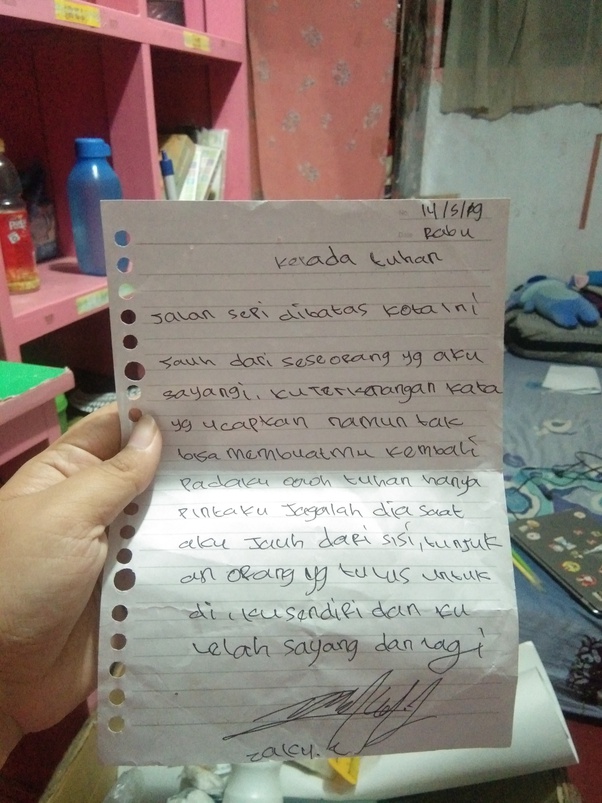 14/5/19
Rabu
Kepada tuhan
Jalan sepi dibatas kota ini
Jauh dari seseorang yg aku
sayangi. ku terkenangan kata
yg ucapkan namun tak
bisa membuatmu kembali
Padaku oooh tuhan hanya
Pintaku Jagalah dia saat
aku Jauh dari sisi, tunjuk
an orang yg tulus untuk
di ku sendiri dan ku
lelah sayang dan lagi
zaky.k